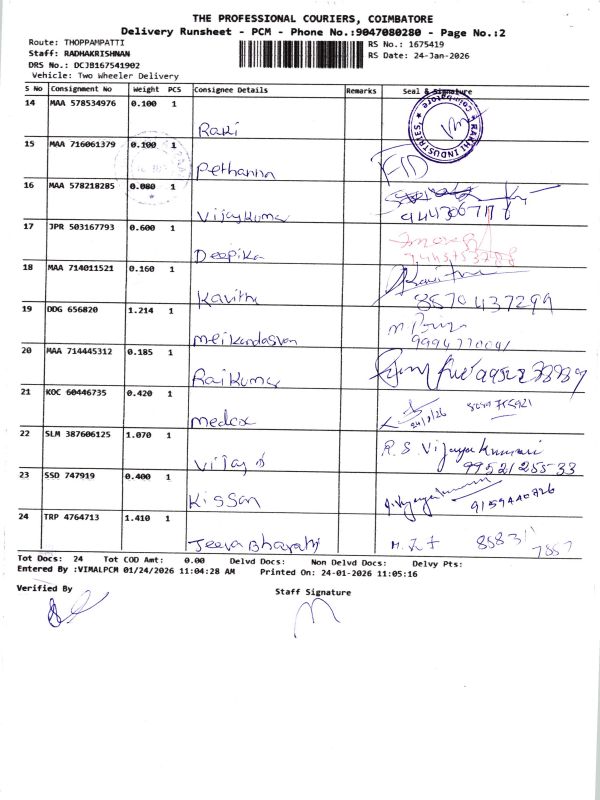 THE PROFESSIONAL COURIERS, COIMBATORE
Delivery Runsheet - PCM - Phone No.:9047080280 - Page No.:2
Route: THOPPAMPATTI
Staff: RADHAKRISHNAN
DRS No.: DCJB167541902
Vehicle: Two Wheeler Delivery
RS No.: 1675419
RS Date: 24-Jan-2026
S No Consignment No Weight PCS Consignee Details Remarks Seal & Signature
14 MAA 578534976 0.100 1 Raki
RAKHI INDUSTRIES Coimbatore
15 MAA 716061379 0.100 1 Pethanna
16 MAA 578218285 0.080 1 Vijaykumar
17 JPR 503167793 0.600 1 Deepika
18 MAA 714011521 0.160 1 Kavitha 8570437299
19 DDG 656820 1.214 1 Meikandasvan
20 MAA 714445312 0.185 1 Rajkumar
21 KOC 60446735 0.420 1 Medox 24/1/26
22 SLM 387606125 1.070 1 Vijay R.S. Vijaya Kumari
9952125533
23 SSD 747919 0.400 1 Kissan 9159440726
24 TRP 4764713 1.410 1 Jeeva Bharathi
Tot Docs: 24 Tot COD Amt: 0.00 Delvd Docs: Non Delvd Docs: Delvy Pts:
Entered By :VIMALPCM 01/24/2026 11:04:28 AM Printed On: 24-01-2026 11:05:16
Verified By Staff Signature